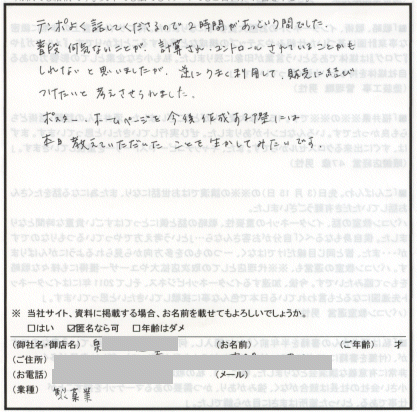 テンポよく話してくださるので2時間があっという間でした。
普段何気ないことが、計算され、コントロールされていることかも
しれないと思いましたが、逆にうまく利用して、販売に結び
つけたいと考えさせられました。
ポスター、ホームページを今後作成する際には
本日教えていただいたことを生かしてみたいです。
※ 当社サイト、資料に掲載する場合、お名前を載せてもよろしいでしょうか。
□はい ☑匿名なら可 □年齢はダメ
(御社名・御店名) (お名前) (ご年齢) 才
(ご住所)
(お電話) (メール)
(業種) 製菓業